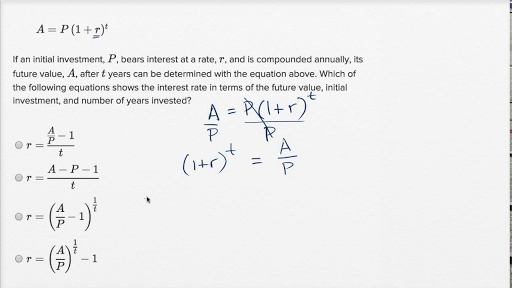 A = P(1 + r)^t
If an initial investment, P, bears interest at a rate, r, and is compounded annually, its
future value, A, after t years can be determined with the equation above. Which of
the following equations shows the interest rate in terms of the future value, initial
investment, and number of years invested?
A/P = P(1+r)^t/P
(1+r)^t = A/P
r = (A/P − 1)/t
r = (A − P − 1)/t
r = (A/P − 1)^(1/t)
r = (A/P)^(1/t) − 1